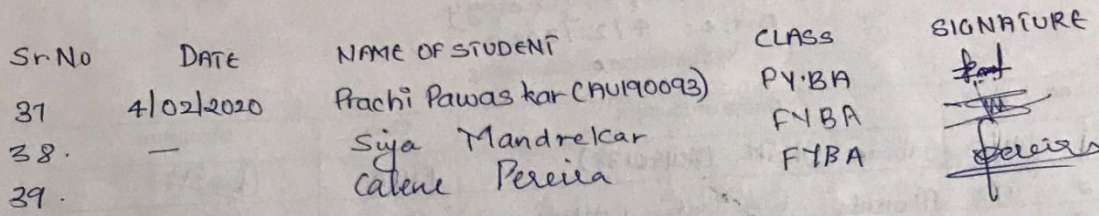 Sr.No DATE NAME OF STUDENT CLASS SIGNATURE
37 4/02/2020 Prachi Pawaskar (AU190093) PY.BA
38. — Siya Mandrekar FYBA
39. Calene Pereira FYBA Pereira